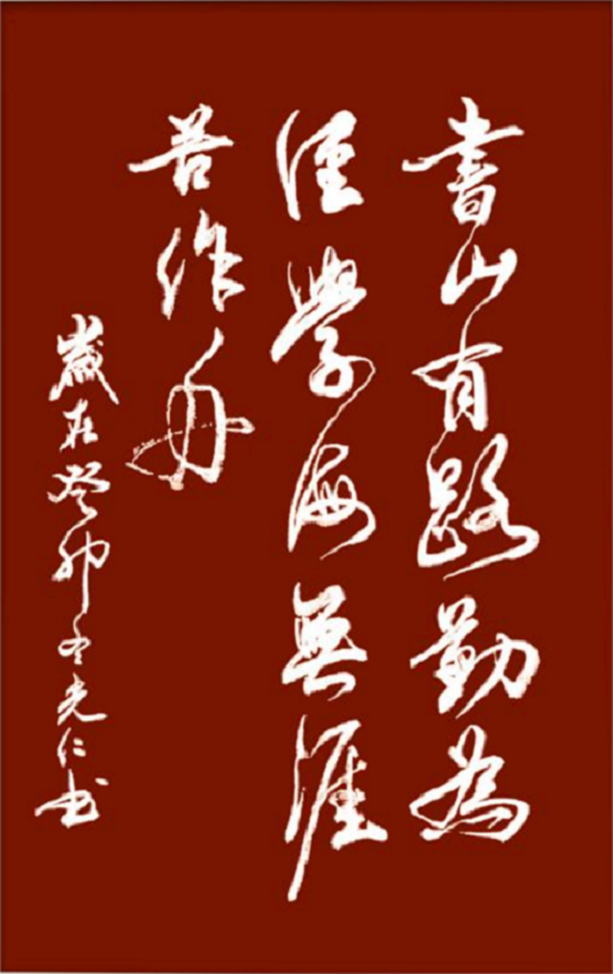 書山有路勤為
徑學海無涯
苦作舟
歲在癸卯冬光仁书